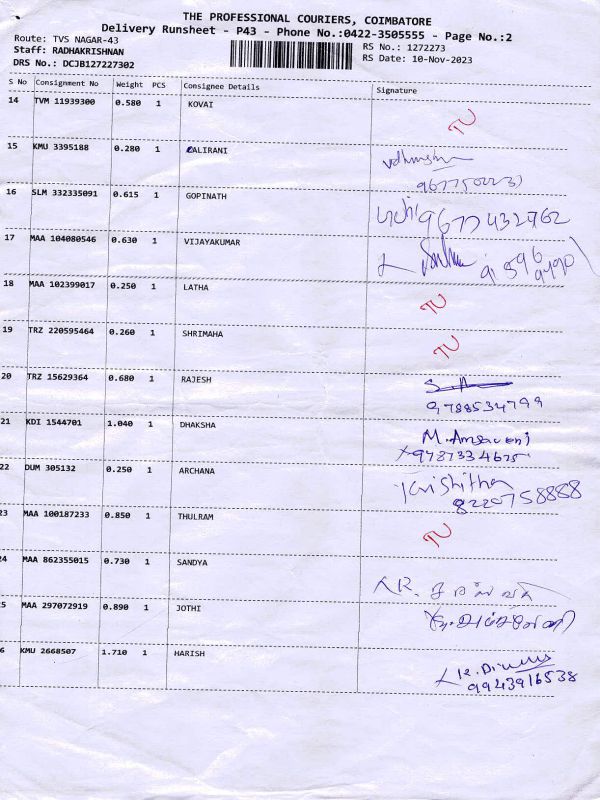 THE PROFESSIONAL COURIERS, COIMBATORE
Delivery Runsheet - P43 - Phone No.:0422-3505555 - Page No.:2
Route: TVS NAGAR-43
Staff: RADHAKRISHNAN
RS No.: 1272273
DRS No.: DCJB127227302
RS Date: 10-Nov-2023
S No Consignment No Weight PCS Consignee Details Signature
14 TVM 11939300 0.580 1 KOVAI TU
15 KMU 3395188 0.280 1 CALIRANI
16 SLM 332335091 0.615 1 GOPINATH 9677432962
17 MAA 104080546 0.630 1 VIJAYAKUMAR
18 MAA 102399017 0.250 1 LATHA TU
19 TRZ 220595464 0.260 1 SHRIMAHA TU
20 TRZ 15629364 0.680 1 RAJESH
9788534799
21 KDI 1544701 1.040 1 DHAKSHA M.
9787334675
22 DUM 305132 0.250 1 ARCHANA Krishitha
8220758888
23 MAA 100187233 0.850 1 THULRAM TU
24 MAA 862355015 0.730 1 SANDYA R.
25 MAA 297072919 0.890 1 JOTHI
6 KMU 2668507 1.710 1 HARISH K.
9943916538